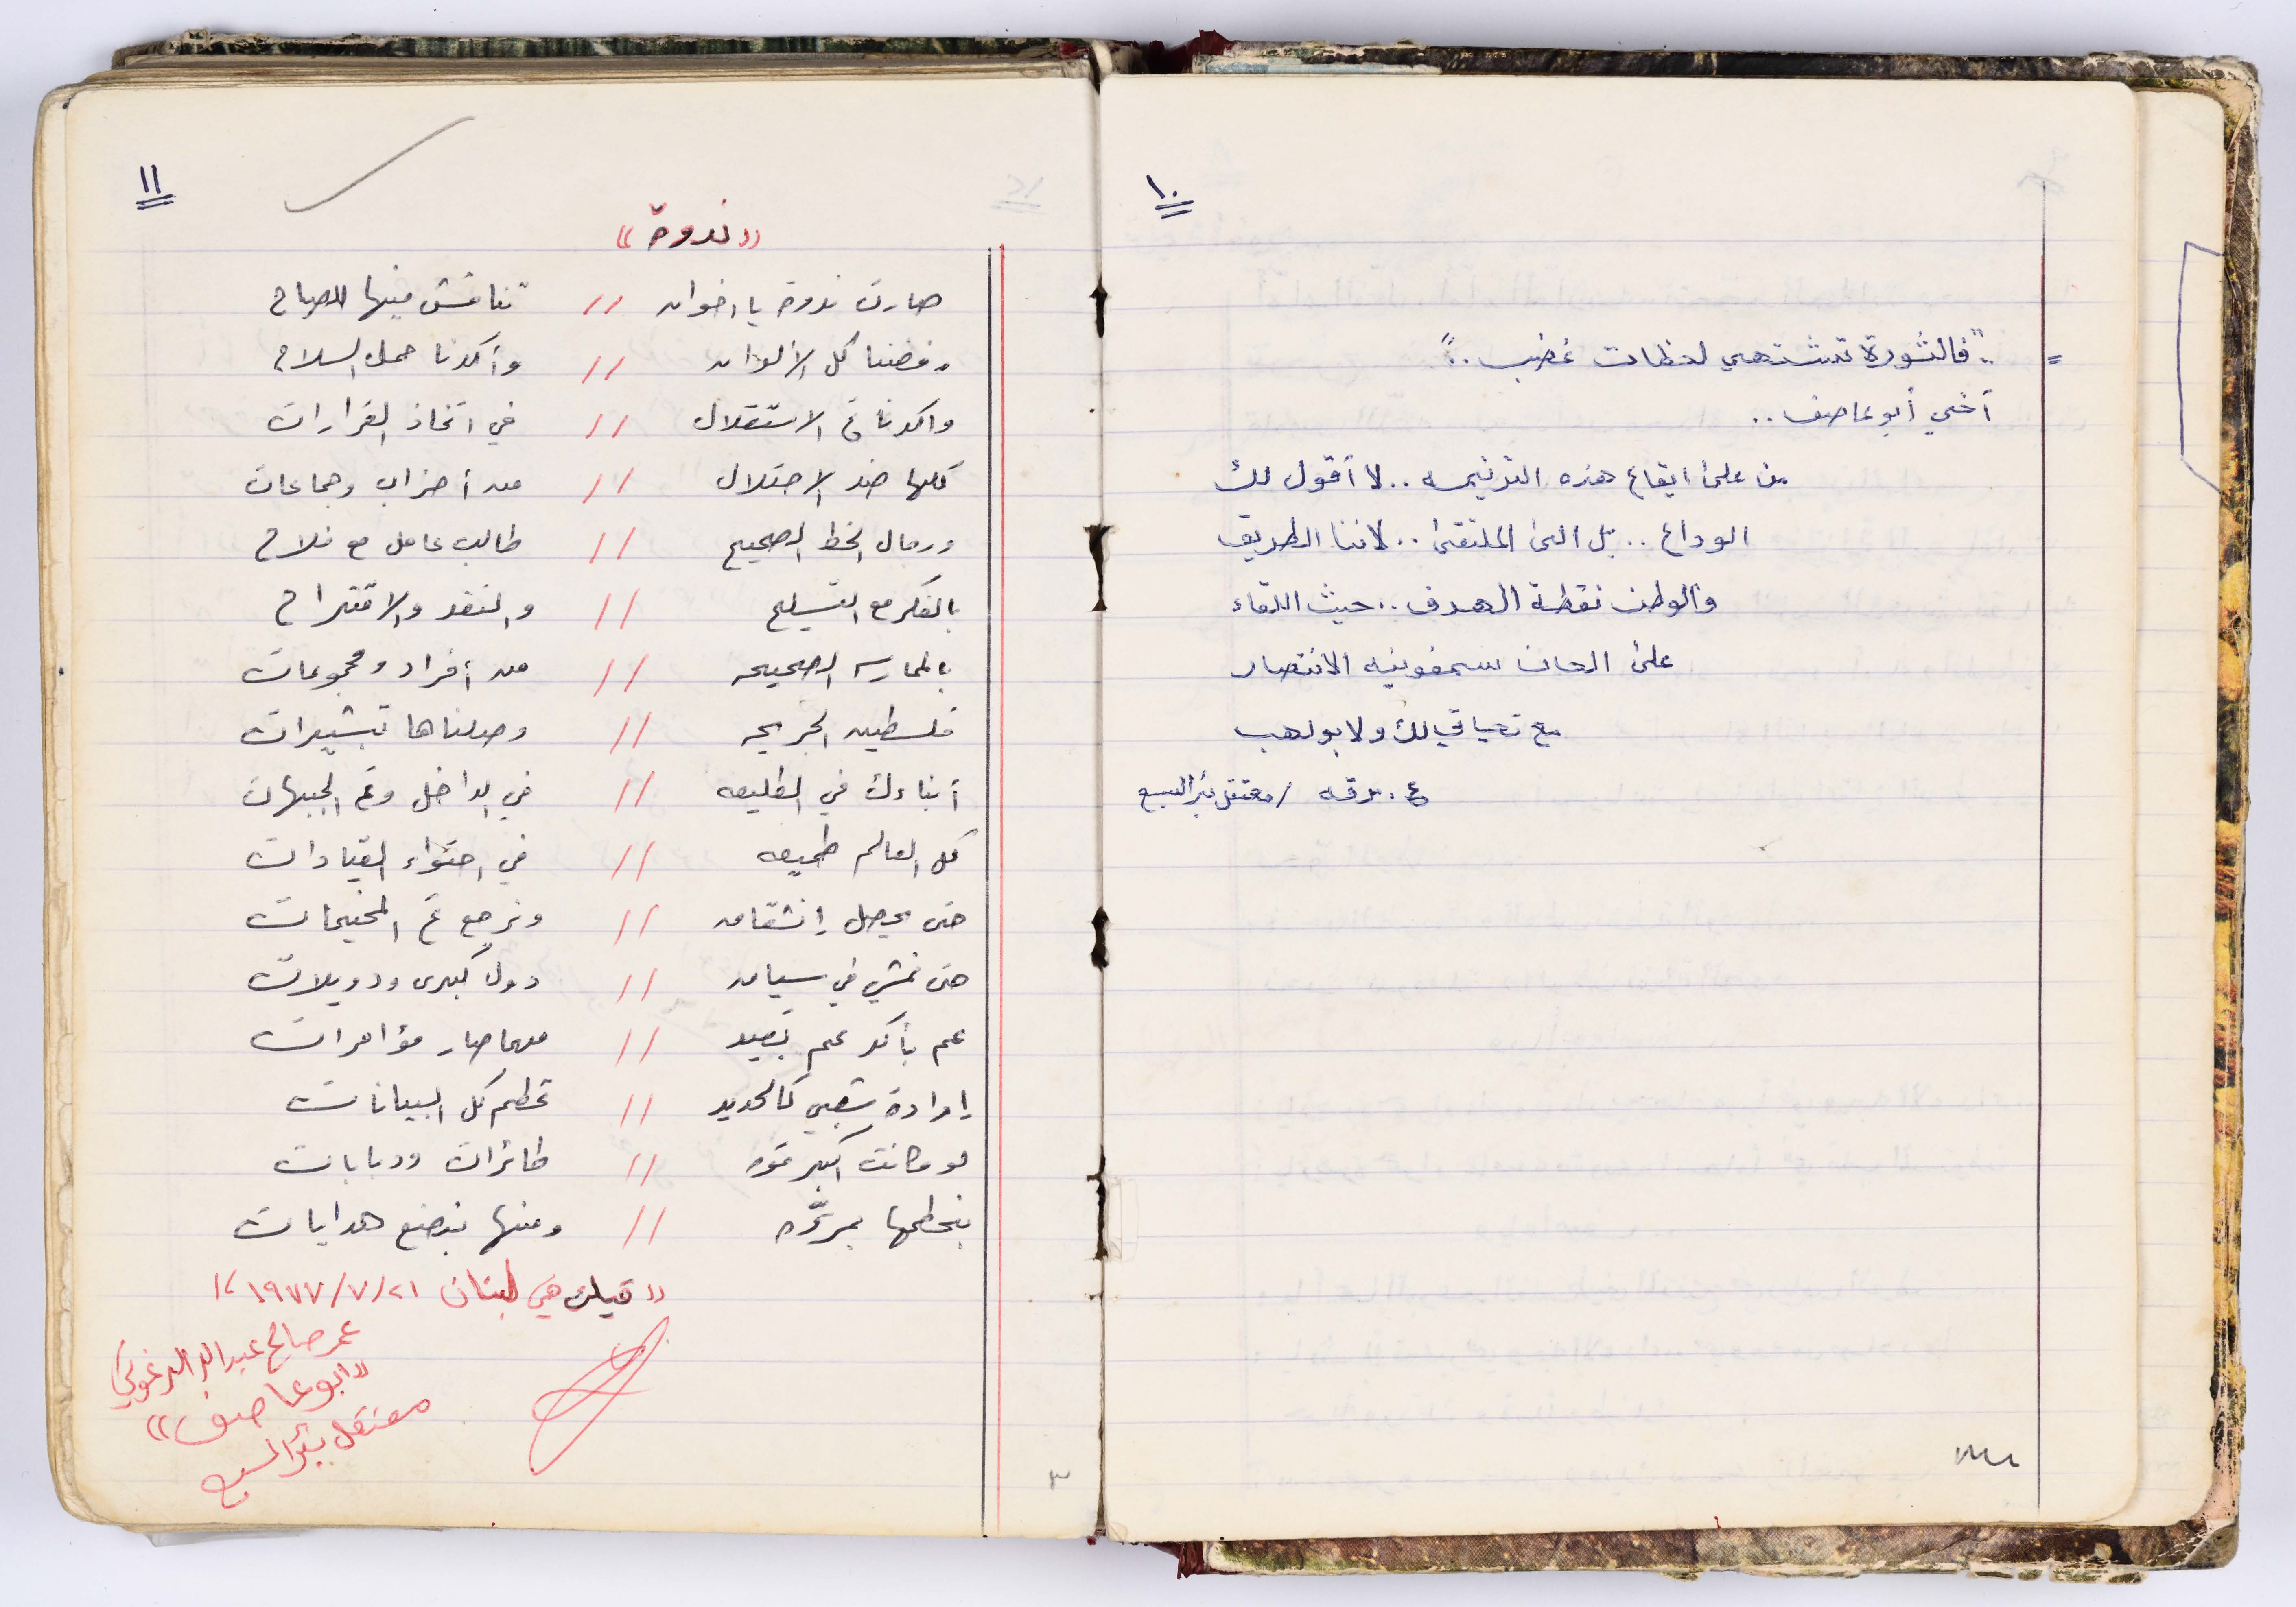 ١٠
= ".. فالثورة تشتهي لحظات غضب .."
أخي أبو عاصف ..
من على ايقاع هذه الترنيمه .. لا أقول لك
الوداع .. بل الى الملتقى .. لاننا الطريق
والوطن نقطة الهدف .. حيث اللقاء
على الحان سمفونيه الانتصار
مع تحياتي لك ولابو لهب
ع . برقه / معتقل بئر السبع
١١
« ندوة »
صارت ندوة يا اخوان // تنافش فيها للصباح
رفضنا كل الألوان // وأكدنا حمل السلاح
واكدنا ع الاستقلال // في اتخاذ القرارات
كلها ضد الاحتلال // من أحزاب وجماعات
ورجال الخط الصحيح // طالب عامل مع فلاح
بالفكر مع التسليح // والنقد والاقتراح
بالممارسه الصحيحه // من أفراد ومجموعات
فلسطين الجريحه // وصلناها تبشيرات
أبناءك في الطليعه // في الداخل وع الجبهات
كل العالم طميعه // في احتواء القيادات
حتى يحصل إنشقاق // ونرجع ع المخيمات
حتى نمشي في سياق // دول كبرى ودويلات
عم بأكد عم بعيد // مهما صار مؤامرات
إرادة شعبي كالحديد // تحطم كل البيانات
لو كانت اكبر قوه // طائرات ودبابات
بنحطمها بمرّه // ومنها بنصنع هدايات
« قيلت في لبنان ٢١/٧/١٩٧٧ »
عمر صالح عبدالبر البرغوثي
« ابو عاصف »
معتقل بئر السبع
٣